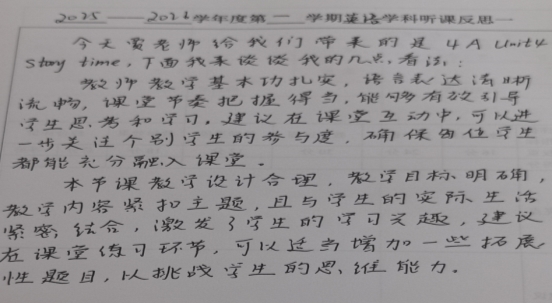 2025 —— 2026 学年度第 一 学期英语学科听课反思一
今天贾老师给我们带来的是 4A Unit4
Story time, 下面我来谈谈我的几点看法:
教师教学基本功扎实, 语言表达清晰
流畅, 课堂节奏把握得当, 能够有效引导
学生思考和学习。建议在课堂互动中, 可以进
一步关注个别学生的参与度, 确保每位学生
都能充分融入课堂。
本节课教学设计合理, 教学目标明确,
教学内容紧扣主题, 且与学生的实际生活
紧密结合, 激发了学生的学习兴趣, 建议
在课堂练习环节, 可以适当增加一些拓展
性题目, 以挑战学生的思维能力。